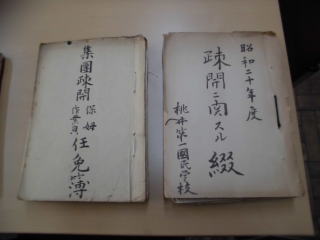 昭和二十年度
疎開ニ関スル綴
桃井第一國民学校
集團疎開保姆作業員任免簿